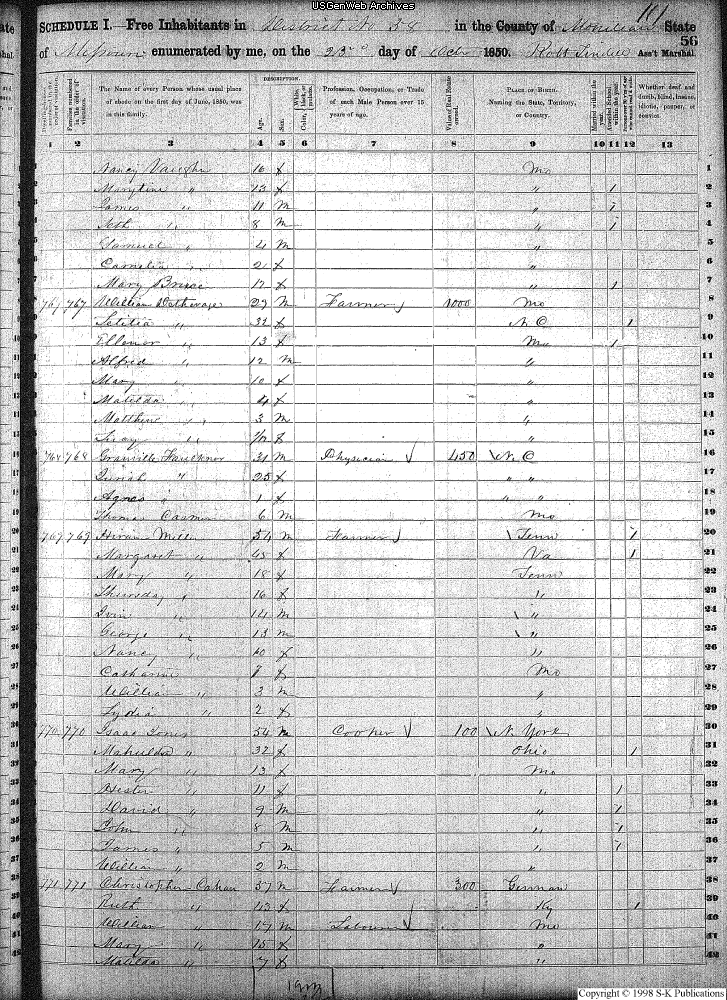 USGenWeb Archives
101
SCHEDULE I.—Free Inhabitants in District No 38 in the County of State
56
of Missouri enumerated by me, on the 23 day of Octr 1850. Ass't Marshal.
DESCRIPTION.
The Name of every Person whose usual place of abode on the first day of June, 1850, was in this family.
Age.
Sex.
Color, White, black, or mulatto.
Profession, Occupation, or Trade of each Male Person over 15 years of age.
Value of Real Estate owned.
PLACE OF BIRTH. Naming the State, Territory, or Country.
Married within the year.
Attended School within the year.
Whether deaf and dumb, blind, insane, idiotic, pauper, or convict.
1 2 3 4 5 6 7 8 9 10 11 12 13
Nancy Vaughn 16 f Mo 1
" 13 f " 1 2
James " 11 m " 1 3
Seth " 8 m " 1 4
Samuel " 4 m " 5
Cornelia " 2 f " 6
Mary Bruce 17 f " 1 7
767 767 William 29 m Farmer 1000 Mo 8
Letitia " 32 f N C 1 9
Ellenor " 13 f Mo 1 10
Alfred " 12 m " 11
Mary " 10 f " 12
Matilda " 4 f " 13
Matthew " 3 m " 14
" f " 15
768 768 Granville Faulkner 31 m Physician 450 N. C 16
" 25 f " " 17
Agnes " 1 f " " 18
Thomas 6 m Mo 19
769 769 Hiram Mills 54 m Farmer Tenn 1 20
Margaret " 45 f Va 1 21
Mary " 18 f Tenn 22
Thursday " 16 f " 23
" 14 m " 24
George " 13 m " 25
Nancy " 10 f " 26
Catharine 7 f Mo 27
William " 3 m " 28
Lydia " 2 f " 29
770 770 Isaac Jones 54 m Cooper 100 N. York 30
Mahulda " 32 f Ohio 1 31
Mary " 13 f Mo 32
Hester " 11 f " 1 33
David " 9 m " 1 34
John " 8 m " 1 35
James " 5 m " 1 36
William " 2 m " 37
771 771 Christopher 57 m Farmer 300 German 38
Ruth " 43 f Ky 1 39
William " 17 m Labourer Mo 40
Mary " 15 f " 41
Matilda " 7 f " 42
Copyright © 1998 S-K Publications